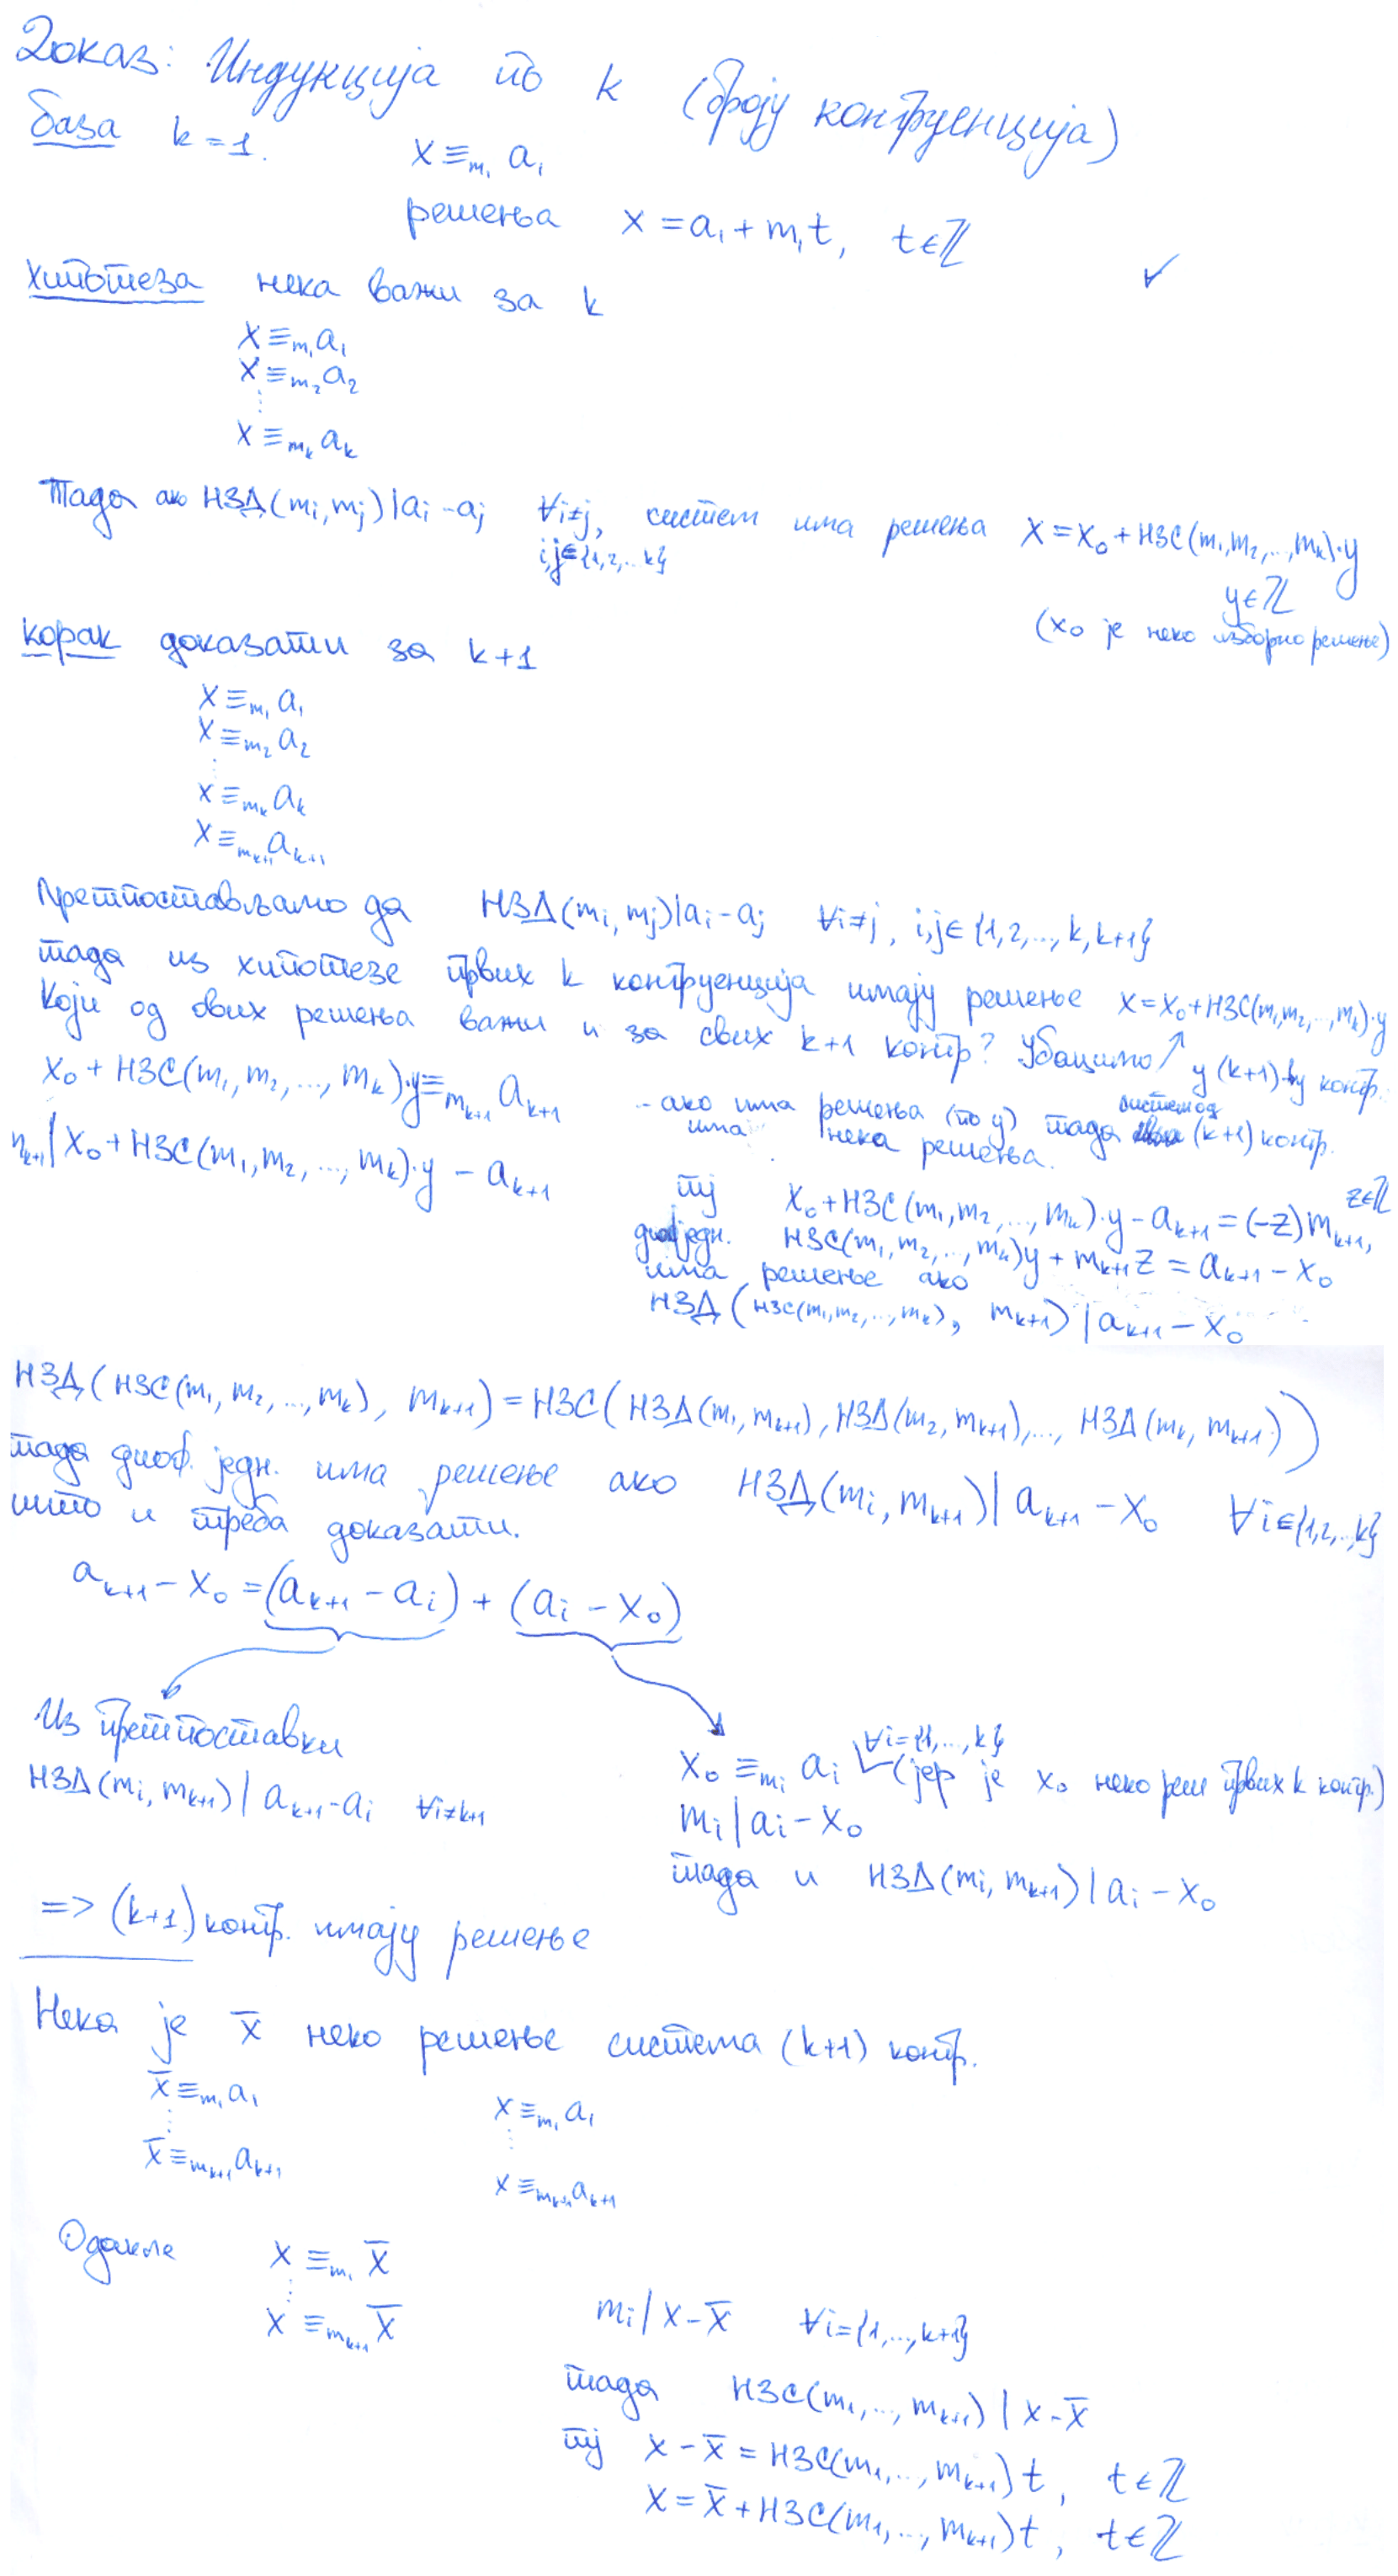 Доказ: Индукција по k (броју конгруенција)
база k=1. x ≡_{m₁} a₁
решења x = a₁ + m₁t, t∈ℤ ✓
хипотеза нека важи за k
x ≡_{m₁} a₁
x ≡_{m₂} a₂
⋮
x ≡_{m_k} a_k
Тада ако НЗД(mᵢ, mⱼ) | aᵢ - aⱼ ∀i≠j, i,j∈{1,2,...k} систем има решења x = x₀ + НЗС(m₁,m₂,...,m_k)·y
y∈ℤ
(x₀ је неко изборно решење)
корак доказати за k+1
x ≡_{m₁} a₁
x ≡_{m₂} a₂
⋮
x ≡_{m_k} a_k
x ≡_{m_{k+1}} a_{k+1}
Претпостављамо да НЗД(mᵢ, mⱼ) | aᵢ - aⱼ ∀i≠j, i,j∈{1,2,...,k,k+1}
тада из хипотезе првих k конгруенција имају решење x = x₀ + НЗС(m₁,m₂,...,m_k)·y
Који од ових решења важи и за свих k+1 конгр? Убацимо ↗ у (k+1)-ву конгр.
x₀ + НЗС(m₁, m₂, ..., m_k)·y ≡_{m_{k+1}} a_{k+1} - ако има решења (по y) тада систем од (k+1) конгр.
има нека решења.
m_{k+1} | x₀ + НЗС(m₁, m₂, ..., m_k)·y - a_{k+1}
тј x₀ + НЗС(m₁, m₂, ..., m_k)·y - a_{k+1} = (-z)m_{k+1}, z∈ℤ
диоф једн. НЗС(m₁, m₂, ..., m_k)y + m_{k+1}z = a_{k+1} - x₀
има решење ако
НЗД(НЗС(m₁,m₂,...,m_k), m_{k+1}) | a_{k+1} - x₀
НЗД(НЗС(m₁, m₂, ..., m_k), m_{k+1}) = НЗС(НЗД(m₁, m_{k+1}), НЗД(m₂, m_{k+1}), ..., НЗД(m_k, m_{k+1}))
тада диоф. једн. има решење ако НЗД(mᵢ, m_{k+1}) | a_{k+1} - x₀ ∀i∈{1,2,..,k}
што и треба доказати.
a_{k+1} - x₀ = (a_{k+1} - aᵢ) + (aᵢ - x₀)
Из претпоставки
НЗД(mᵢ, m_{k+1}) | a_{k+1} - aᵢ ∀i≠k+1
x₀ ≡_{mᵢ} aᵢ ∀i={1,...,k} (јер је x₀ неко реш првих k конгр.)
mᵢ | aᵢ - x₀
тада и НЗД(mᵢ, m_{k+1}) | aᵢ - x₀
=> (k+1) конгр. имају решење
Нека је x̄ неко решење система (k+1) конгр.
x̄ ≡_{m₁} a₁ x ≡_{m₁} a₁
⋮ ⋮
x̄ ≡_{m_{k+1}} a_{k+1} x ≡_{m_{k+1}} a_{k+1}
Одакле x ≡_{m₁} x̄
⋮
x ≡_{m_{k+1}} x̄
mᵢ | x - x̄ ∀i={1,...,k+1}
тада НЗС(m₁, ..., m_{k+1}) | x - x̄
тј x - x̄ = НЗС(m₁, ..., m_{k+1})t, t∈ℤ
x = x̄ + НЗС(m₁, ..., m_{k+1})t, t∈ℤ